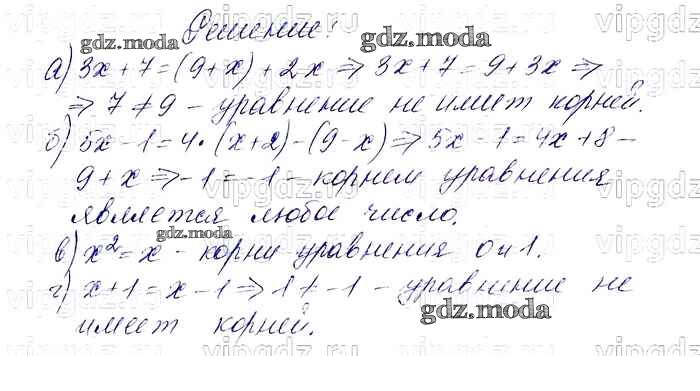 Решение:
а) 3x + 7 = (9 + x) + 2x ⇒ 3x + 7 = 9 + 3x ⇒
⇒ 7 ≠ 9 – уравнение не имеет корней.
б) 5x – 1 = 4 · (x + 2) – (9 – x) ⇒ 5x – 1 = 4x + 8 –
9 + x ⇒ –1 = –1 – корнем уравнения
является любое число.
в) x² = x – корни уравнения 0 и 1.
г) x + 1 = x – 1 ⇒ 1 ≠ –1 – уравнение не
имеет корней.
gdz.moda
gdz.moda
gdz.moda
gdz.moda
vipgdz.ru